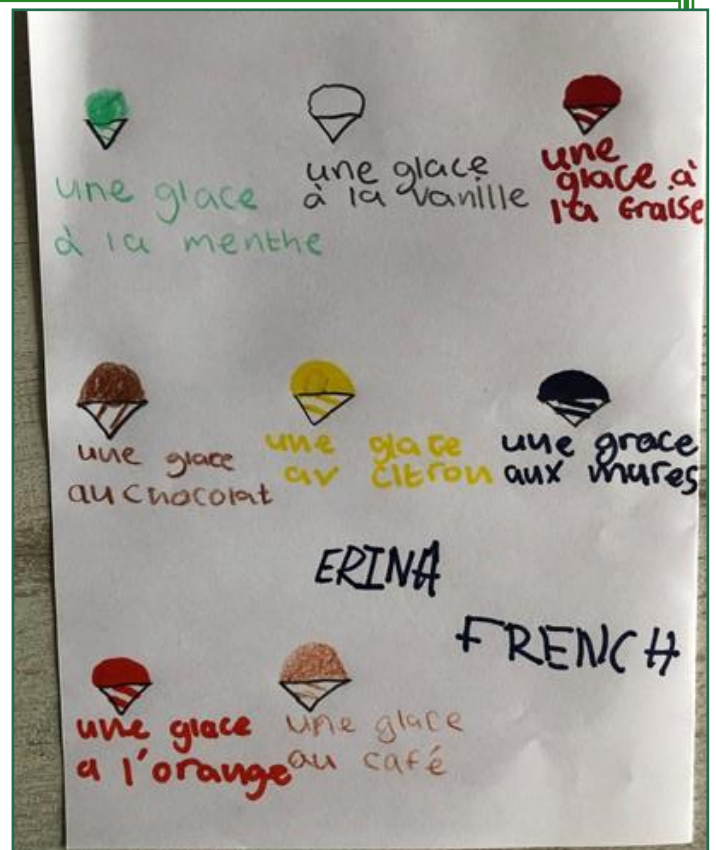 une glace
à la menthe
une glace
à la vanille
une
glace à
la fraise
une glace
au chocolat
une glace
au citron
une grace
aux mures
ERINA
FRENCH
une glace
a l'orange
une glace
au café